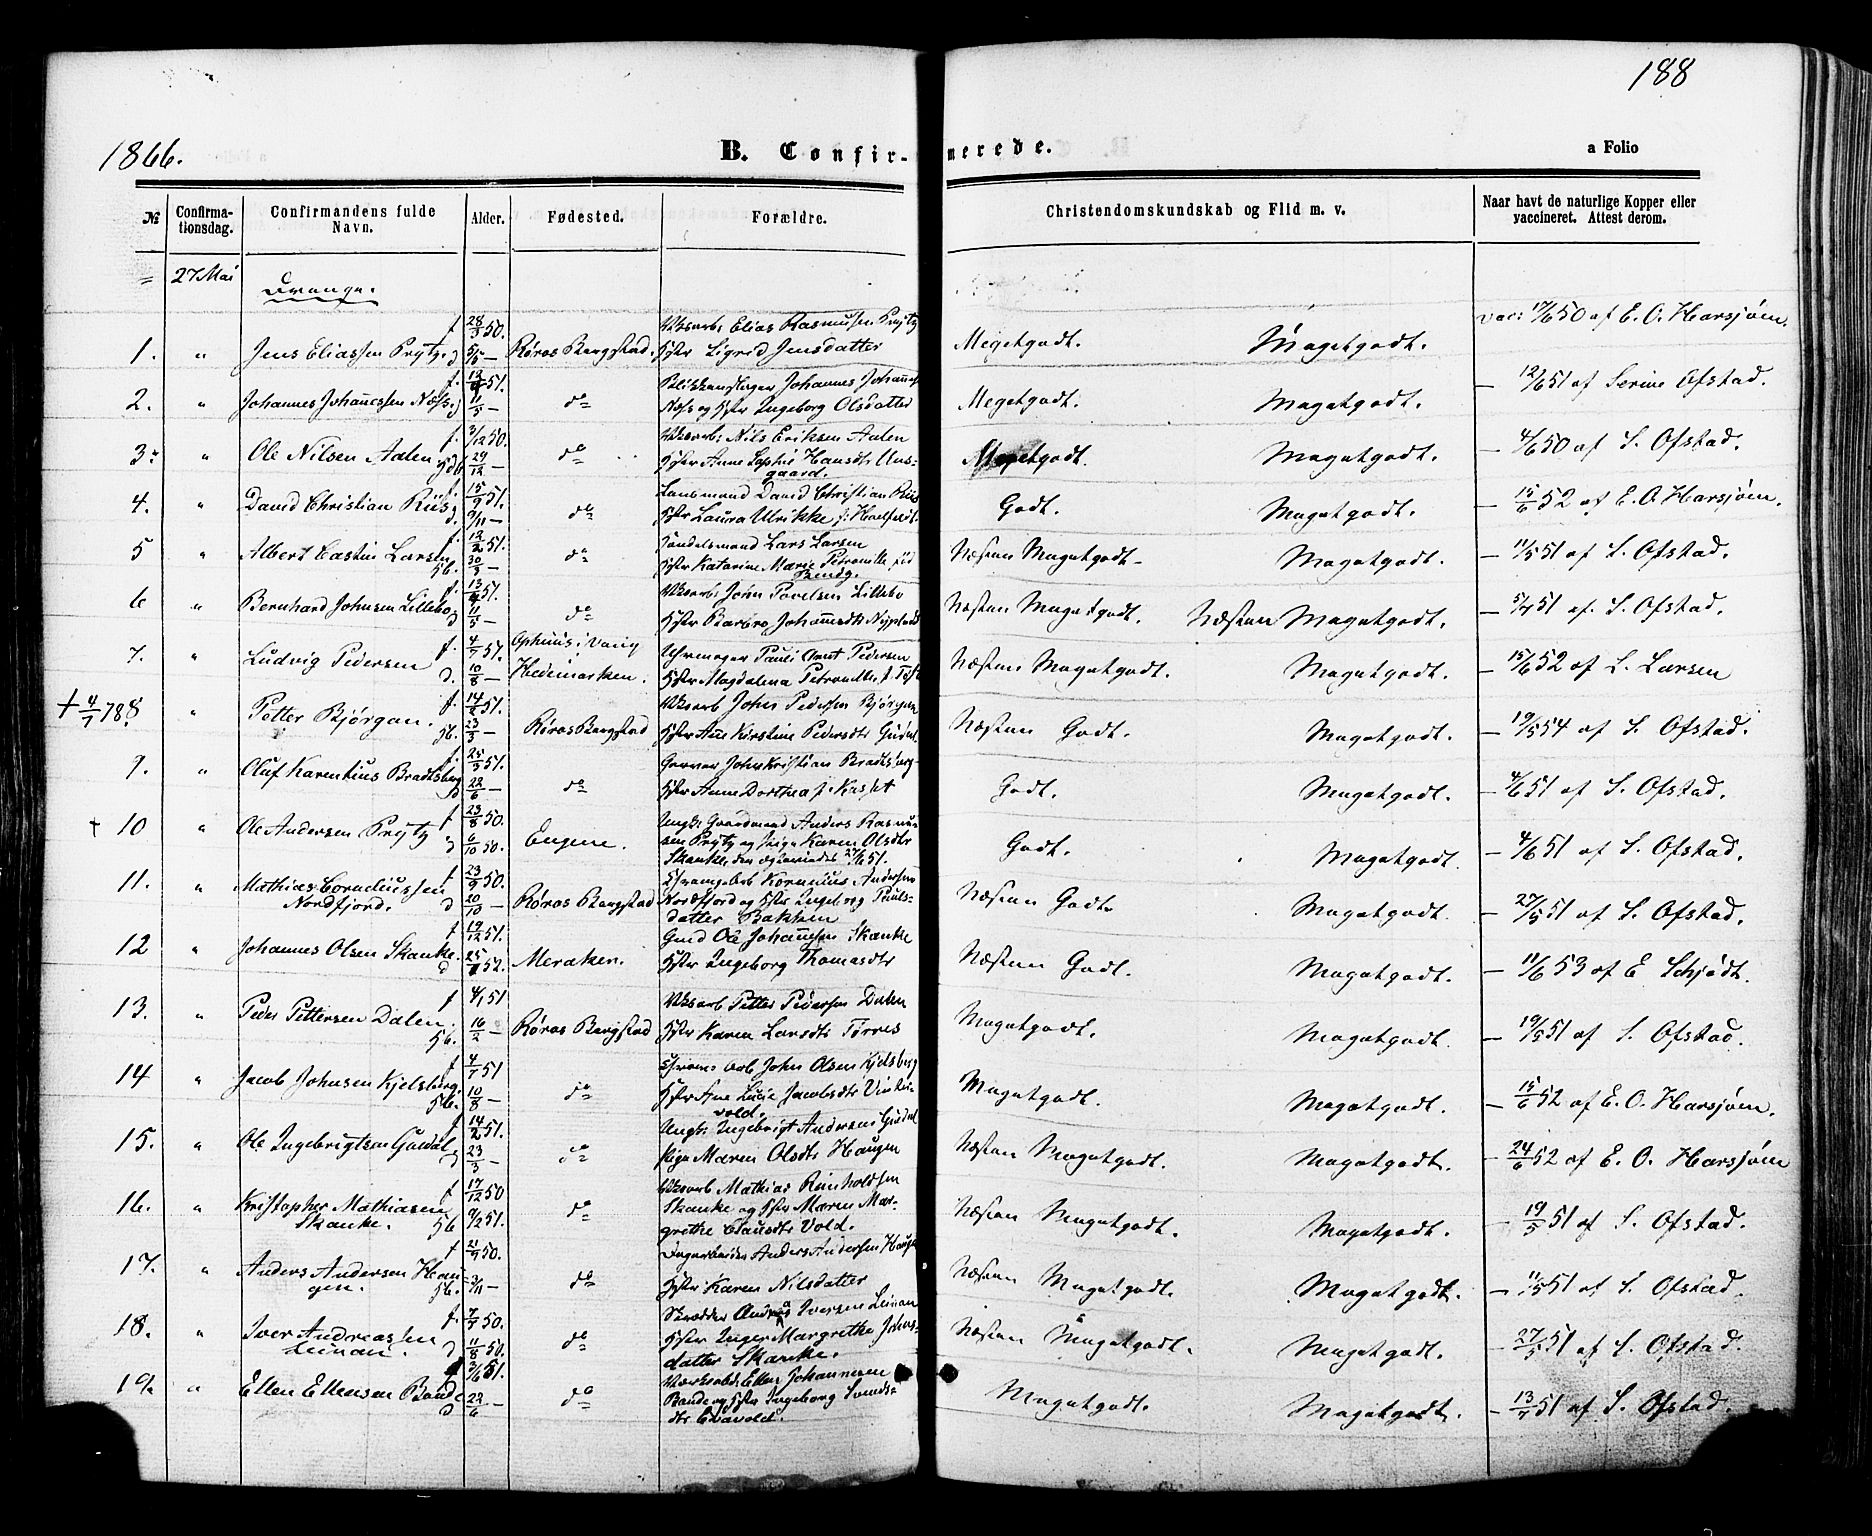 188
1866.
B. Confirmerede.
a Folio
№
Confirmationsdag.
Confirmandens fulde Navn.
Alder.
Fødested.
Forældre.
Christendomskundskab og Flid m. v.
Naar havt de naturlige Kopper eller vaccineret. Attest derom.
27 Mai
Drenge.
1. " Jens Eliassen Prytz f. 28/3 50. d 5/5 — Røros Bergstad. Elias Rasmussen Prytz Hstr Sigrid Jensdatter Megetgodt. Megetgodt. vac: 17/6 50 af E. O. Harsjøen.
2. " Johannes Johannessen Næss. f. 51. d 11/5 — do Johannes Johannes Næss og Hstr Ingeborg Olsdatter Megetgodt. Megetgodt. — 12/6 51 af Serine Ofstad.
3. " Ole Nilsen Aalen f. 3/12 50. Hdb 29/12 — do Nils Eriksen Aalen Hstr Anne Sophie Hansdtr Aasgaard. Megetgodt. Megetgodt. — 4/6 50 af S. Ofstad.
4. " David Christian Riis f. 15/9 51. d. 9/11 — do David Christian Riis Hstr Laura Ulrikke f. Godt. Megetgodt. — 15/6 52 af E. O. Harsjøen.
5 " Albert Larsen f. 12/2 51. Hb. 30/3 — do Handelsmand Lars Larsen Hstr Katarine Marie Petronelle Næsten Megetgodt — Megetgodt. — 11/5 51 af S. Ofstad.
6 " Bernhard Johnsen Lillebo f. 51. d 11/5 — do John Povelsen Lillebo Hstr Barbro Johannesdtr Næsten Megetgodt. Næsten Megetgodt. — 51 af. S. Ofstad.
7. " Ludvig Pedersen f. 4/7 51. d. 10/8 — Ophuus i Vang Hedemarken. Uhrmager Pauli Arnt Pedersen Hstr Magdalena Petronelle f. Næsten Megetgodt. Megetgodt. — 15/6 52 af L. Larsen
+ 4/7 78 8. " Petter Bjørgan. f. 14/2 51. Hb. 23/3 — Røros Bergstad John Pedersen Bjørgan Hstr Ane Kirstine Pedersdtr Næsten Godt. Megetgodt. — 19/5 54 af S. Ofstad.
9. " Oluf Karentius Bradtsberg f. 25/3 51. d 22/6 — do Garver John Kristian Bradtsberg Hstr Anne Dorthea f. Godt. Megetgodt. — 4/6 51 af S. Ofstad.
+ 10 " Ole Andersen Prytz f 23/8 50. d 6/10 50. Engene. Ungk: Gaardmand Anders Rasmussen Prytz og Pige Karen Olsdtr Skanke, Godt. Megetgodt. — 4/6 51 af S. Ofstad.
11. " Mathias Corneliussen Nordfjord. f 23/9 50. d 20/10 — Røros Bergstad Kornelius Andersen Nordfjord og Hstr Ingeborg Paulsdatter Bakken Næsten Godt. Megetgodt. — 27/5 51 af S. Ofstad.
12 " Johannes Olsen Skanke. f 19/12 51. d 52. Meraker. Gmd Ole Johannesen Skanke Hstr Ingeborg Thomasdtr Næsten Godt. Megetgodt. — 11/6 53 af E Schjødt.
13. " Peder Pettersen Dalen. f 4/1 51 Hb. 16/2 — Røros Bergstad Petter Pedersen Dalen Hstr Karen Larsdtr Tørres Megetgodt. Megetgodt. — 19/5 51 af S. Ofstad.
14 " Jacob Johnsen Kjelsberg. f 4/7 51 Hb. 10/8 — do John Olsen Kjelsberg Hstr Ane Lucie Jacobsdtr Vintervold. Megetgodt. Megetgodt. — 15/6 52 af E. O. Harsjøen.
15. " Ole Ingebrigtsen Guldal. f 14/2 51. d 23/3 — do Ungk: Ingebrigt Andersen Guldal Pige Maren Olsdtr Haugen Næsten Megetgodt. Megetgodt. — 24/6 52 af E. O. Harsjøen
16. " Kristopher Mathiasen Skanke. f 17/12 50 Hb 9/2 51. do Mathias Reinholdsen Skanke og Hstr Maren Margrethe Clausdtr Vold. Næsten Megetgodt. Megetgodt. — 19/5 51 af S. Ofstad.
17. " Anders Andersen Haugen. f 21/9 50. Hb. 3/11 — do Anders Andersen Haugen Hstr Karen Nilsdatter Næsten Megetgodt. Megetgodt. — 11/5 51 af S. Ofstad.
18. " Iver Andreassen Leinan. f. 7/7 50. d 11/8 50. do Skrædder Andreas Iversen Leinan Hstr Inger Margrethe Johnsdatter Skanke. Næsten Megetgodt. Megetgodt. — 27/5 51 af S. Ofstad.
19. " Ellen Ellensen Bonde f 3/6 51. d 22/6 — do Ellen Johannesen Bonde og Hstr Ingeborg Svendsdtr Megetgodt. Megetgodt. — 13/7 51 af S. Ofstad.